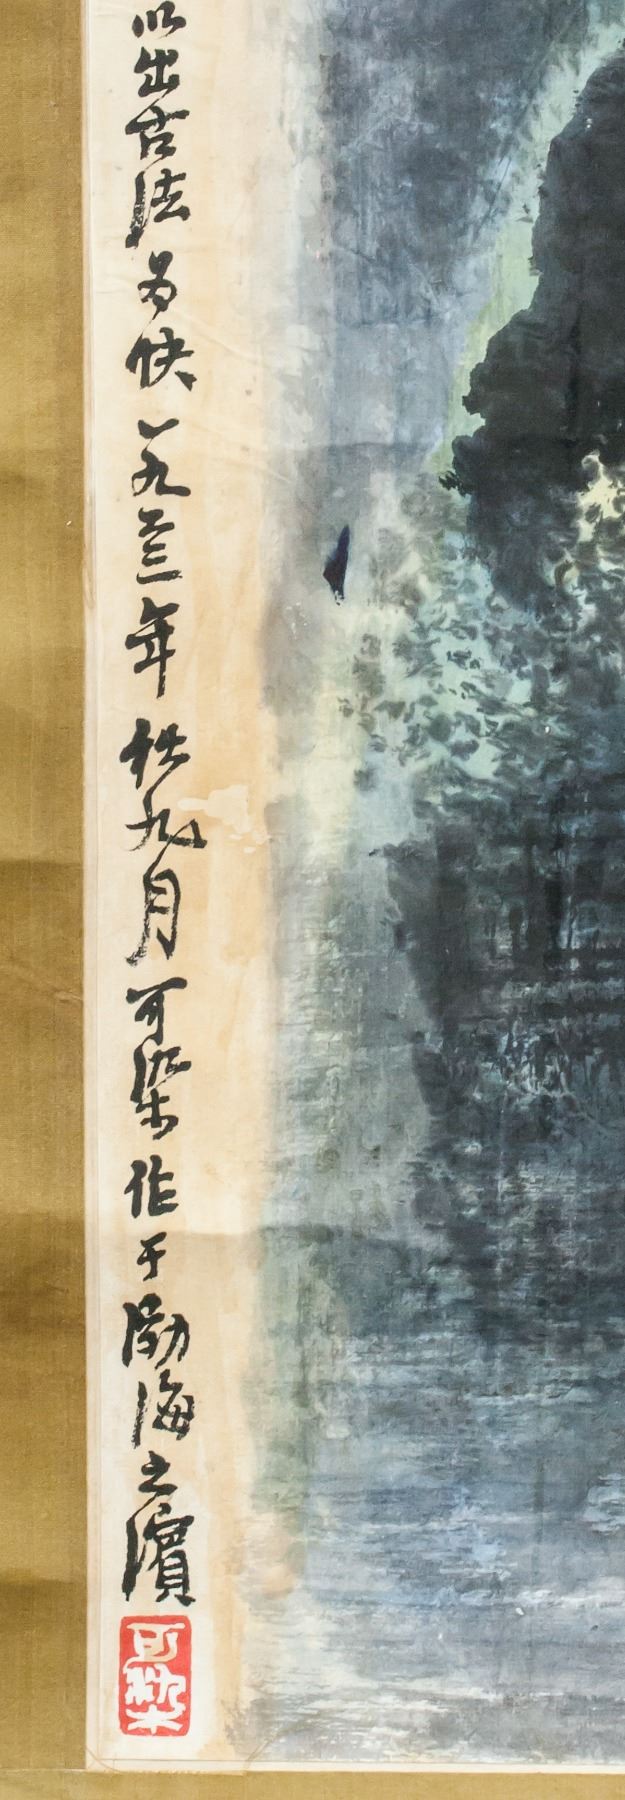 以出古法为快一九六三年秋九月可染作于渤海之濱
可染